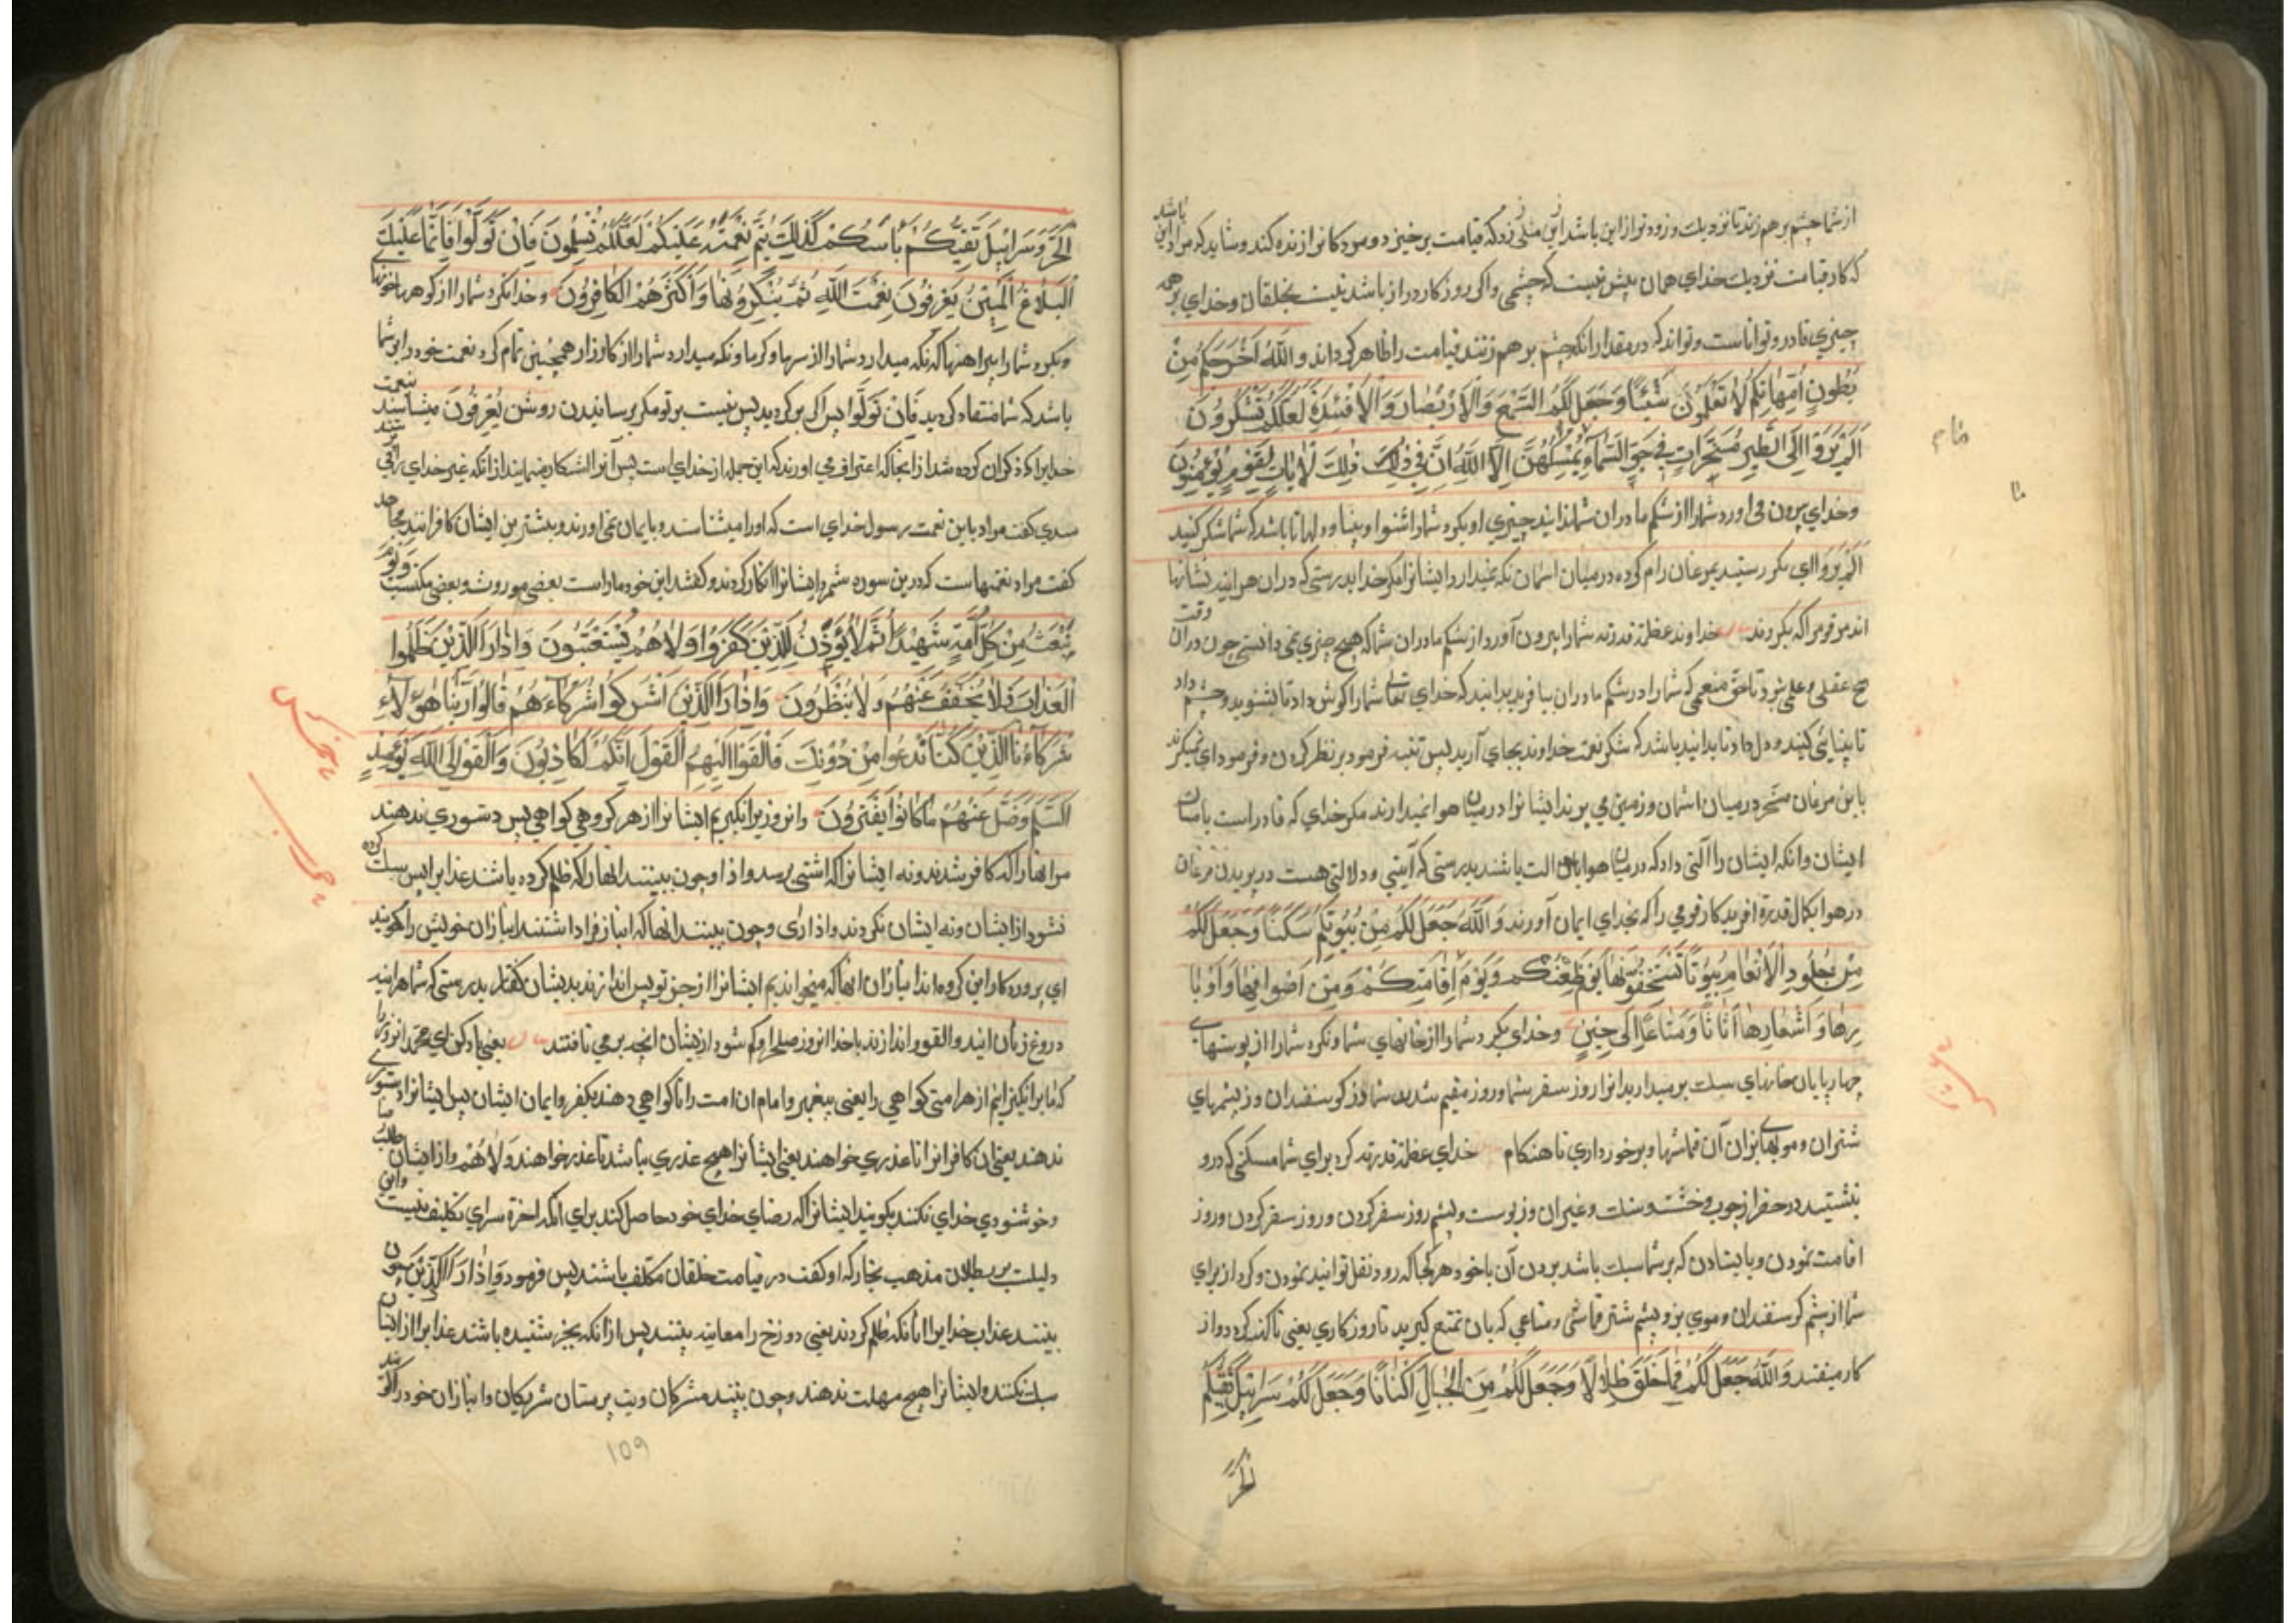 از شما چشم بر هم زند تا نزدیك و زودتر از این باشد این مثلی زد که قیامت برخیزد و مردکانرا زنده کند و شاید که مراد این باشد
که کار قیامت نزدیك خدای همان بیش نیست که چشمی واکر روزکار دراز باشد نیست بخلقان و خدای بر همه
چیزی قادر و تواناست و تواند که در مقدار انکه چشم بر هم زنند قیامت را ظاهر کرداند و اللّٰهُ اَخْرَجَكُمْ مِنْ
بُطُونِ اُمَّهَاتِكُمْ لَا تَعْلَمُونَ شَيْئًا وَجَعَلَ لَكُمُ السَّمْعَ وَالْاَبْصَارَ وَالْاَفْئِدَةَ لَعَلَّكُمْ تَشْكُرُونَ
اَلَمْ يَرَوْا اِلَى الطَّيْرِ مُسَخَّرَاتٍ فِي جَوِّ السَّمَاءِ يُمْسِكُهُنَّ اِلَّا اللّٰهُ اِنَّ فِي ذٰلِكَ لَاٰيَاتٍ لِقَوْمٍ يُؤْمِنُونَ
وخدای برون می اورد شما را از شکم مادران شما نداند چیزی او بکرد شما را شنوا و بینا و دلها تا باشد که شما شکر کنید
اَلَمْ يَرَوْا ای نکرستید بمرغان رام کرده در میان اسمان نکه نمیدارد ایشانرا مکر خدا بدرستی که دران هرایند نشانها
اند مر قومرا که بکروند خداوند عظمة قدرته شما را بیرون آورد از شکم مادران شما که هیچ چیزی نمی دانستی چون دران وقت
هیچ عقلی و علمی نبود تا حق منعمی که شما را در شکم مادران بیافرید بدانید که خدای تعالی شما را کوش داد تا بشنوید و چشم داد
تا بینائی کنید و دل داد تا بدانید باشد که شکر نعمت خداوند بجای آرید پس تنبیه فرمود بر نظر کردن و فرمود ای نمیکرند
باین مرغان مسخر در میان اسمان و زمین می پرند ایشانرا در میان هوا نمیدارند مکر خدای که قادر است بامساك
ایشان وانکه ایشان را آلتی داد که در میان هوا بان الت باشند بدرستی که آیتی و دلالتی هست در پریدن مرغان
در هوا بکمال قدرة افریدکار قومی را که بخدای ایمان آورند وَ اللّٰهُ جَعَلَ لَكُمْ مِنْ بُيُوتِكُمْ سَكَنًا وَجَعَلَ لَكُمْ
مِنْ جُلُودِ الْاَنْعَامِ بُيُوتًا تَسْتَخِفُّونَهَا يَوْمَ ظَعْنِكُمْ وَيَوْمَ اِقَامَتِكُمْ وَمِنْ اَصْوَافِهَا وَاَوْبَا
رِهَا وَاَشْعَارِهَا اَثَاثًا وَمَتَاعًا اِلَى حِينٍ وخدای بکرد شما را از خانهای شما ونکرد شما را از پوستهای
چهارپایان خانهای سبك بر میدارید انرا روز سفر شما و روز مقیم شدن شما وز کوسفندان وز پشمهای
شتران و مویهای بزان آن قماشها و برخورداری تا هنکام خدای عظمة قدرته کرد برای شما مسکنی که درو
بنشینید در حضر از چوب و خشت و سنك و غیران وز پوست و پشم روز سفر کردن و روز سفر کردن و روز
اقامت نمودن و بایستادن که بر شما سبك باشد بردن آن باخود هر کجا که رود نقل توانید نمودن و کرد از برای
شما از پشم کوسفندان و موی بز و پشم شتر قماشی و متاعی که بان تمتع کیرید تا روزکاری یعنی تا کنه کردد واز
کار میفتند وَاللّٰهُ جَعَلَ لَكُمْ مِمَّا خَلَقَ ظِلَالًا وَجَعَلَ لَكُمْ مِنَ الْجِبَالِ اَكْنَانًا وَجَعَلَ لَكُمْ سَرَابِيلَ تَقِيكُمُ
الْحَرَّ
الْحَرَّ وَسَرَابِيلَ تَقِيكُمْ بَأْسَكُمْ كَذٰلِكَ يُتِمُّ نِعْمَتَهُ عَلَيْكُمْ لَعَلَّكُمْ تُسْلِمُونَ فَاِنْ تَوَلَّوْا فَاِنَّمَا عَلَيْكَ
الْبَلَاغُ الْمُبِينُ يَعْرِفُونَ نِعْمَتَ اللّٰهِ ثُمَّ يُنْكِرُونَهَا وَاَكْثَرُهُمُ الْكَافِرُونَ وخدا بکرد شما را از کوهها خانهای
وبکرد شما را پیراهنها که نکه میدارد شما را از سرما وکرما ونکه میدارد شما را از کارزار همچنین تمام کرد نعمت خود را بر شما
باشد که شما منقاد کردید فَاِنْ تَوَلَّوْا پس اکر برکردید پس نیست بر تو مکر برسانیدن روشن يَعْرِفُونَ میشناسند نعمت
خدایرا که ذکر ان کرده شد از انجا که اعتراف می اورند که این جمله از خدای است پس آنرا انکار مینمایند از انکه غیر خدای را
سدی کفت مراد باین نعمت رسول خدای است که اورا میشناسند و بایمان نمی اورند و بیشترین ایشان کافرانند مجاهد
کفت مراد نعمتهاست که درین سوره شمرد ایشانرا انکار کردند و کفتند این خود ماراست بعضی موروث و بعضی مکتسب وَيَوْمَ
نَبْعَثُ مِنْ كُلِّ اُمَّةٍ شَهِيدًا ثُمَّ لَا يُؤْذَنُ لِلَّذِينَ كَفَرُوا وَلَا هُمْ يُسْتَعْتَبُونَ وَاِذَا رَاَ الَّذِينَ ظَلَمُوا
الْعَذَابَ فَلَا يُخَفَّفُ عَنْهُمْ وَلَا يُنْظَرُونَ وَاِذَا رَاَ الَّذِينَ اَشْرَكُوا شُرَكَاءَهُمْ قَالُوا رَبَّنَا هٰؤُلَاءِ
شُرَكَاؤُنَا الَّذِينَ كُنَّا نَدْعُوا مِنْ دُونِكَ فَاَلْقَوْا اِلَيْهِمُ الْقَوْلَ اِنَّكُمْ لَكَاذِبُونَ وَاَلْقَوْا اِلَى اللّٰهِ يَوْمَئِذٍ
السَّلَمَ وَضَلَّ عَنْهُمْ مَا كَانُوا يَفْتَرُونَ وانروز برانکیزیم ایشانرا از هر کروهی کواهی پس دستوری ندهند
مرانها را که کافر شدند ونه ایشانرا که اشتی برسد واذا وچون ببینند انهارا که ظلم کرده باشند عذابرا پس سبك کرده
نشود از ایشان ونه ایشان نکردند واذا رای وچون ببینند انها که انباز فرا داشتند انبازان خویش را کویند
ای پروردکار این کروه ما انبازان انها که میخواندیم ایشانرا از جز تو پس اندازند بدیشان کفتار بدرستی که شما هرایند
دروغ زنان ایند والقو و اندازند باخدا انروز صلح را وکم شود از یشان انچه بر می بافتند یعنی یاد کن ای محمد انروز را
که ما برانکیزانیم از هر امتی کواهی را یعنی پیغمبر و امام ان امت را تا کواهی دهند بکفر و ایمان ایشان پس ایشانرا دستوری
ندهند یعنی ان کافرانرا تا عذری خواهند یعنی ایشانرا هیچ عذری نباشد تا عذر خواهند وَلَا هُمْ واز ایشان طلب
وخوشنودی خدای نکنند بکویند ایشانرا که رضای خدای خود حاصل کنند برای انکه اخرة سرای تکلیف نیست واین
دلیلست بر بطلان مذهب نجار که او کفت در قیامت خلقان مکلف باشند پس فرمود وَاِذَا رَاَ الَّذِينَ چون
ببینند عذاب خدایرا انانکه ظلم کردند یعنی دوزخ را معاینه ببینند پس از انکه بخبر شنیده باشند عذابرا از ایشان
سبك نکنند وایشانرا هیچ مهلت ندهند وچون ببینند مشرکان وبت پرستان شریکان وانبازان خود را کویند
109